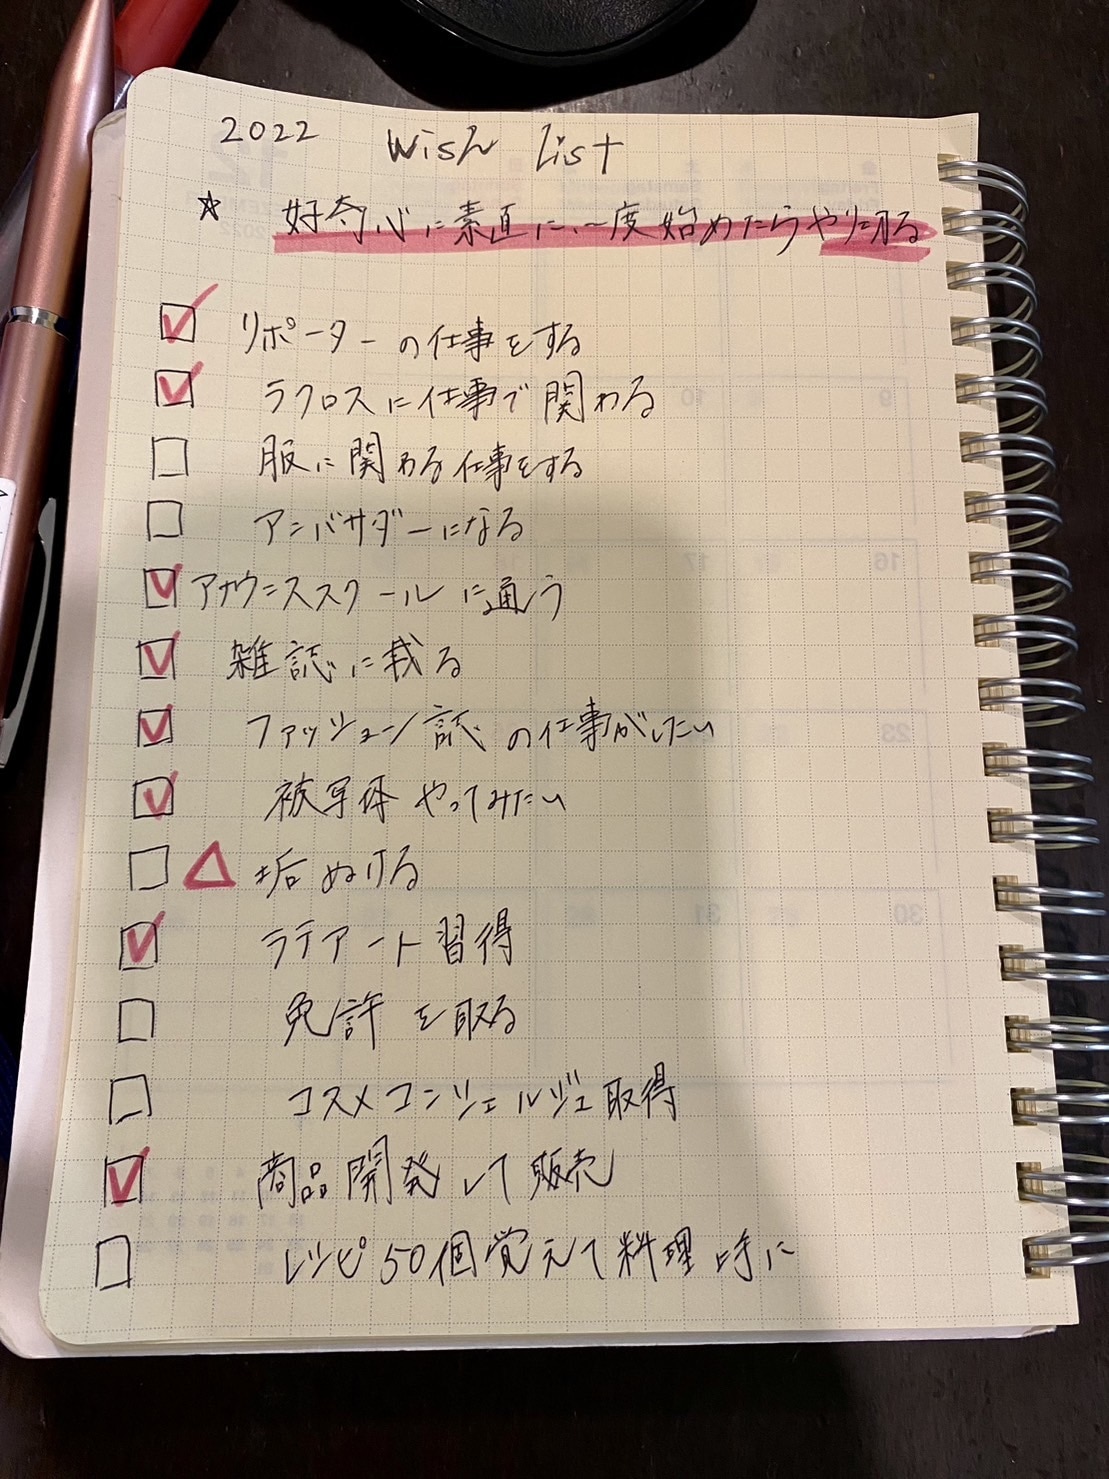 2022 Wish List
☆ 好奇心に素直に、一度始めたらやり切る
☑ リポーターの仕事をする
☑ ラクロスに仕事で関わる
☐ 服に関わる仕事をする
☐ アンバサダーになる
☑ アナウンススクールに通う
☑ 雑誌に載る
☑ ファッション誌の仕事がしたい
☑ 被写体やってみたい
☐ △ 垢ぬける
☑ ラテアート習得
☐ 免許を取る
☐ コスメコンシェルジュ取得
☑ 商品開発して販売
☐ レシピ50個覚えて料理上手に